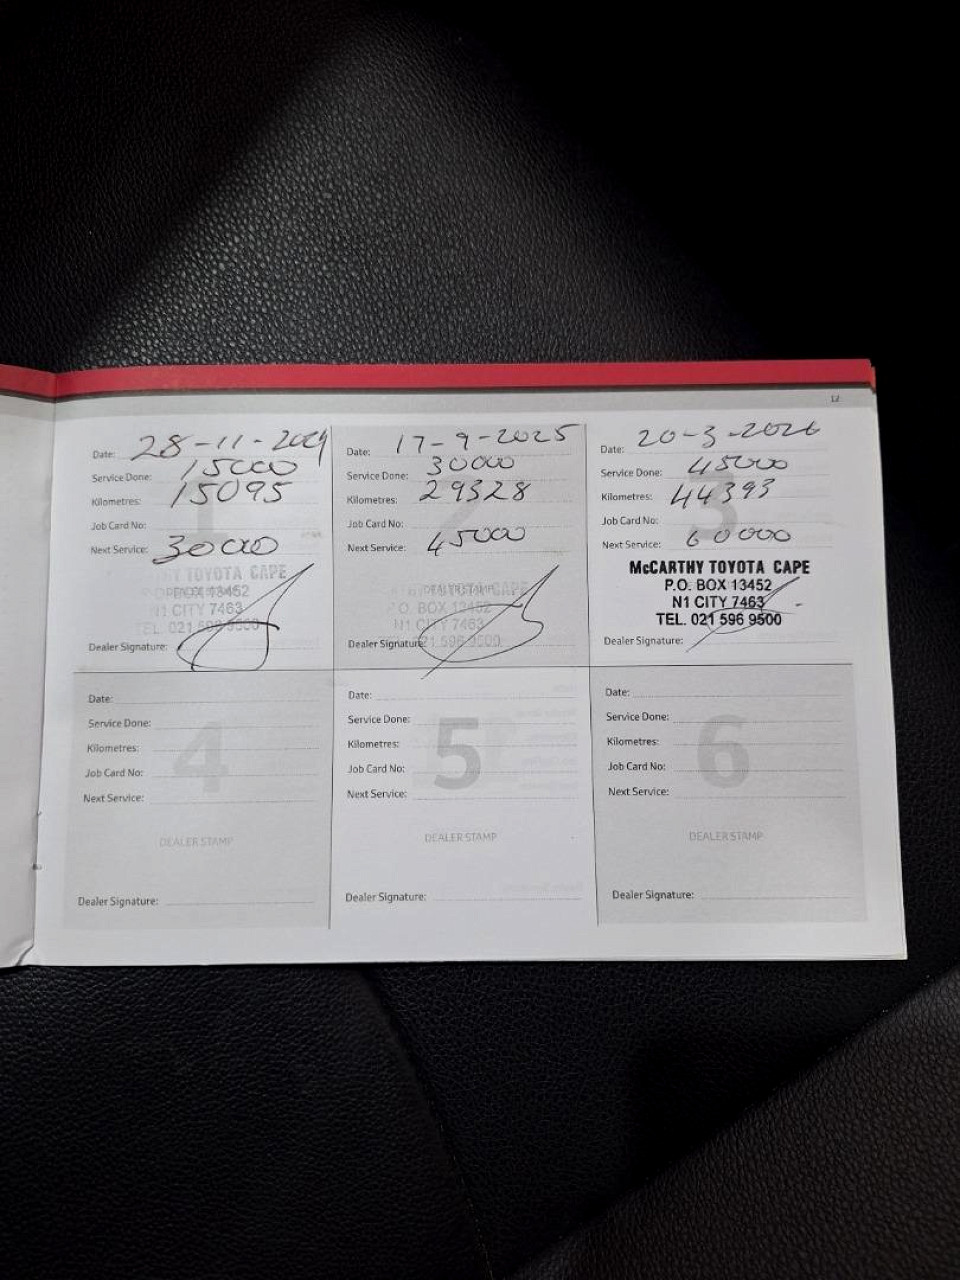 12
Date: 28-11-2024
Service Done: 15000
Kilometres: 15095
Job Card No:
Next Service: 30000
TOYOTA CAPE
P.O. BOX 13452
N1 CITY 7463
TEL. 021 596 9500
Dealer Signature:
1
Date: 17-9-2025
Service Done: 30000
Kilometres: 29328
Job Card No:
Next Service: 45000
DEALER STAMP
TOYOTA CAPE
P.O. BOX 13452
N1 CITY 7463
021 596 9500
Dealer Signature:
2
Date: 20-3-2026
Service Done: 45000
Kilometres: 44393
Job Card No:
Next Service: 60000
McCARTHY TOYOTA CAPE
P.O. BOX 13452
N1 CITY 7463
TEL. 021 596 9500
Dealer Signature:
3
Date:
Service Done:
Kilometres:
Job Card No:
Next Service:
DEALER STAMP
Dealer Signature:
4
Date:
Service Done:
Kilometres:
Job Card No:
Next Service:
DEALER STAMP
Dealer Signature:
5
Date:
Service Done:
Kilometres:
Job Card No:
Next Service:
DEALER STAMP
Dealer Signature:
6